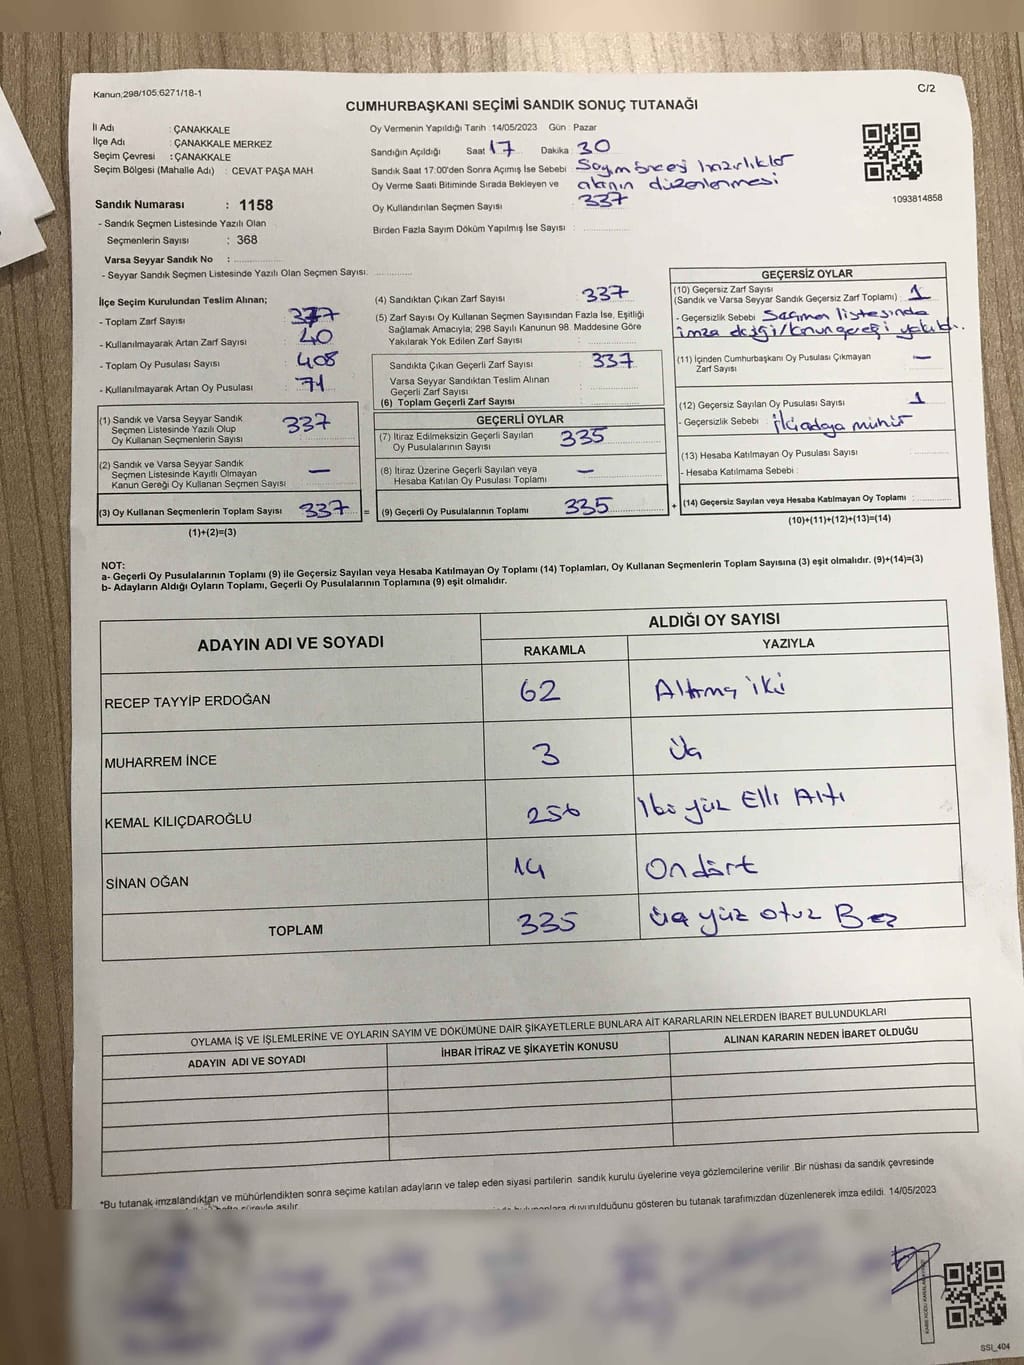 Kanun,298/105.6271/18-1
C/2
CUMHURBAŞKANI SEÇİMİ SANDIK SONUÇ TUTANAĞI
İl Adı : ÇANAKKALE
İlçe Adı : ÇANAKKALE MERKEZ
Seçim Çevresi : ÇANAKKALE
Seçim Bölgesi (Mahalle Adı) : CEVAT PAŞA MAH
Sandık Numarası : 1158
- Sandık Seçmen Listesinde Yazılı Olan
Seçmenlerin Sayısı : 368
Varsa Seyyar Sandık No :
- Seyyar Sandık Seçmen Listesinde Yazılı Olan Seçmen Sayısı.
Oy Vermenin Yapıldığı Tarih : 14/05/2023 Gün : Pazar
Sandığın Açıldığı Saat 17 Dakika : 30
Sandık Saat 17:00'den Sonra Açımış İse Sebebi Sayım öncesi hazırlıklar
Oy Verme Saati Bitiminde Sırada Bekleyen ve alanın düzenlenmesi
Oy Kullandırılan Seçmen Sayısı : 337
Birden Fazla Sayım Döküm Yapılmış İse Sayısı :
1093814858
İlçe Seçim Kurulundan Teslim Alınan;
- Toplam Zarf Sayısı : 377
- Kullanılmayarak Artan Zarf Sayısı : 40
- Toplam Oy Pusulası Sayısı : 408
- Kullanılmayarak Artan Oy Pusulası : 71
(1) Sandık ve Varsa Seyyar Sandık
Seçmen Listesinde Yazılı Olup
Oy Kullanan Seçmenlerin Sayısı : 337
(2) Sandık ve Varsa Seyyar Sandık
Seçmen Listesinde Kayıtlı Olmayan
Kanun Gereği Oy Kullanan Seçmen Sayısı : —
(3) Oy Kullanan Seçmenlerin Toplam Sayısı : 337 =
(1)+(2)=(3)
(4) Sandıktan Çıkan Zarf Sayısı : 337
(5) Zarf Sayısı Oy Kullanan Seçmen Sayısından Fazla İse, Eşitliği
Sağlamak Amacıyla; 298 Sayılı Kanunun 98. Maddesine Göre
Yakılarak Yok Edilen Zarf Sayısı :
Sandıkta Çıkan Geçerli Zarf Sayısı : 337
Varsa Seyyar Sandıktan Teslim Alınan
Geçerli Zarf Sayısı :
(6) Toplam Geçerli Zarf Sayısı :
GEÇERLİ OYLAR
(7) İtiraz Edilmeksizin Geçerli Sayılan
Oy Pusulasının Sayısı : 335
(8) İtiraz Üzerine Geçerli Sayılan veya
Hesaba Katılan Oy Pusulası Toplamı : —
(9) Geçerli Oy Pusulalarının Toplamı : 335 +
GEÇERSİZ OYLAR
(10) Geçersiz Zarf Sayısı
(Sandık ve Varsa Seyyar Sandık Geçersiz Zarf Toplamı) : 1
- Geçersizlik Sebebi : Seçmen listesinde
imza eksiği/kanun gereği yakıldı.
(11) İçinden Cumhurbaşkanı Oy Pusulası Çıkmayan
Zarf Sayısı : —
(12) Geçersiz Sayılan Oy Pusulası Sayısı : 1
- Geçersizlik Sebebi : İki adaya mühür
(13) Hesaba Katılmayan Oy Pusulası Sayısı :
- Hesaba Katılmama Sebebi :
(14) Geçersiz Sayılan veya Hesaba Katılmayan Oy Toplamı :
(10)+(11)+(12)+(13)=(14)
NOT:
a- Geçerli Oy Pusulalarının Toplamı (9) ile Geçersiz Sayılan veya Hesaba Katılmayan Oy Toplamı (14) Toplamları, Oy Kullanan Seçmenlerin Toplam Sayısına (3) eşit olmalıdır. (9)+(14)=(3)
b- Adayların Aldığı Oyların Toplamı, Geçerli Oy Pusulalarının Toplamına (9) eşit olmalıdır.
ADAYIN ADI VE SOYADI ALDIĞI OY SAYISI
RAKAMLA YAZIYLA
RECEP TAYYİP ERDOĞAN 62 Altmış iki
MUHARREM İNCE 3 Üç
KEMAL KILIÇDAROĞLU 256 İki yüz Elli Altı
SİNAN OĞAN 14 On dört
TOPLAM 335 üç yüz otuz Beş
OYLAMA İŞ VE İŞLEMLERİNE VE OYLARIN SAYIM VE DÖKÜMÜNE DAİR ŞİKAYETLERLE BUNLARA AİT KARARLARIN NELERDEN İBARET BULUNDUKLARI
ADAYIN ADI VE SOYADI İHBAR İTİRAZ VE ŞİKAYETİN KONUSU ALINAN KARARIN NEDEN İBARET OLDUĞU
*Bu tutanak imzalandıktan ve mühürlendikten sonra seçime katılan adayların ve talep eden siyasi partilerin sandık kurulu üyelerine veya gözlemcilerine verilir. Bir nüshası da sandık çevresinde
duyurulduğunu gösteren bu tutanak tarafımızdan düzenlenerek imza edildi. 14/05/2023
SSI_404